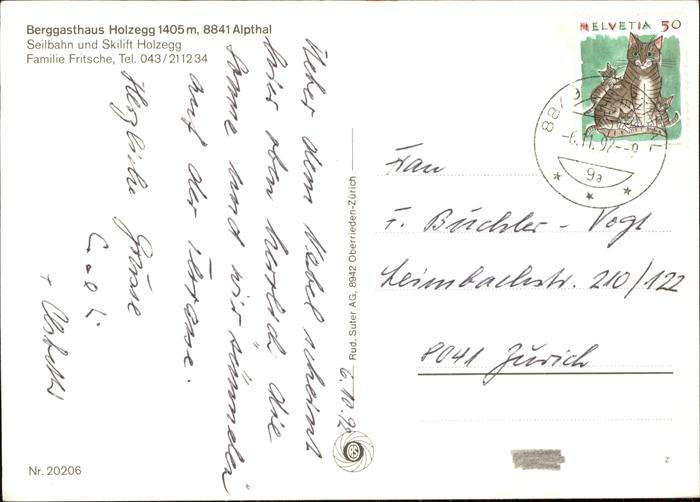 Berggasthaus Holzegg 1405 m, 8841 Alpthal
Seilbahn und Skilift Holzegg
Familie Fritsche, Tel. 043/211234
HELVETIA 50
-6.11.92--9
9a
6.10.92
Ueber dem Nebel scheint
hier oben herrlich die
Sonne und wir "sünnele"
auf der Terrasse.
Herzliche Grüsse
Rud. Suter AG, 8942 Oberrieden-Zürich
Frau
F. Büchler - Vogt
Leimbachstr. 210/122
8041 Zürich
Nr. 20206
Z